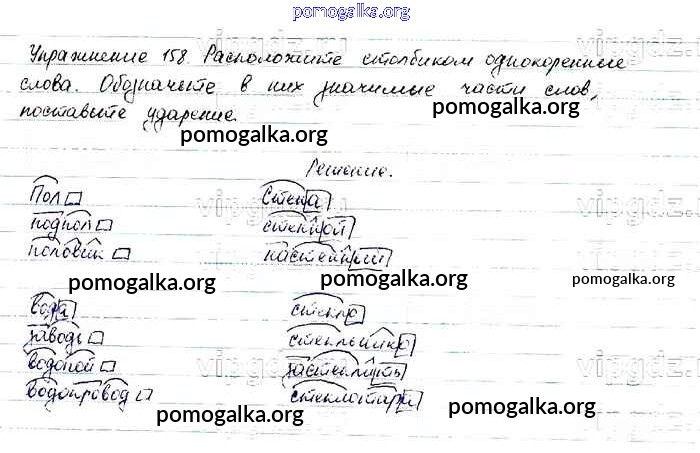 pomogalka.org
Упражнение 158. Расположите столбиком однокоренные
слова. Обозначьте в них значимые части слов,
поставьте ударение.
pomogalka.org pomogalka.org
Решение.
Пол Стена
подпол стенной
половик настенный
pomogalka.org pomogalka.org pomogalka.org
вода стекло
заводь
водопой застеклить
водопровод стеклотара
pomogalka.org pomogalka.org